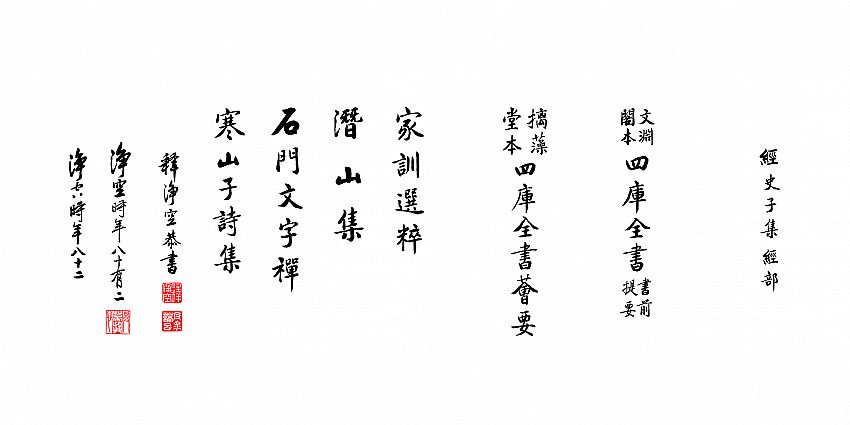 經史子集 經部
文淵閣本四庫全書書前提要
摛藻堂本四庫全書薈要
家訓選粹
潛山集
石門文字禪
寒山子詩集
釋淨空恭書
淨空時年八十有二
時年八十二